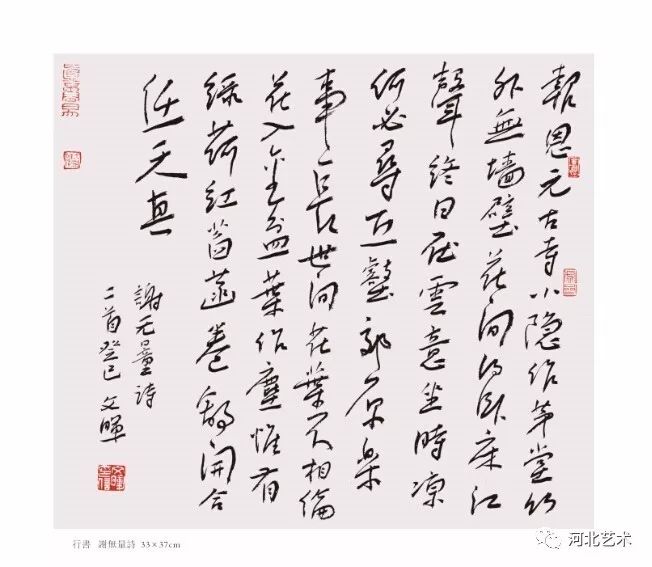 報恩元古寺小隐作茅堂竹
外無墙壁花间得卧床江
聲终日在雲意坐時凉
何必尋丘壑郊原樂
事長世间花葉不相倫
花入金盆葉作塵惟有
绿荷红菡萏卷舒開合
任天真
謝无量詩
二首癸巳文暉
行書 謝無量詩 33×37cm
河北艺术